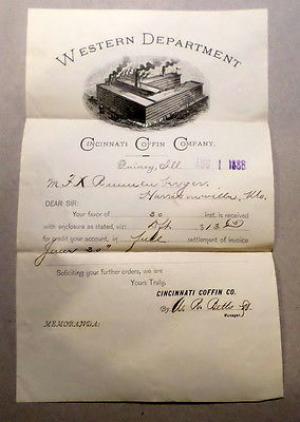 WESTERN DEPARTMENT
CINCINNATI COFFIN COMPANY.
Quincy, Ill. AUG 1 1888
M F. K.
Harrisonville, Mo.
DEAR SIR:
Your favor of 30 inst. is received
with enclosure as stated, viz: Dft.
for credit your account, in full settlement of invoice
June 30"
Soliciting your further orders, we are
Yours Truly,
CINCINNATI COFFIN CO.
Manager.
MEMORANDA: